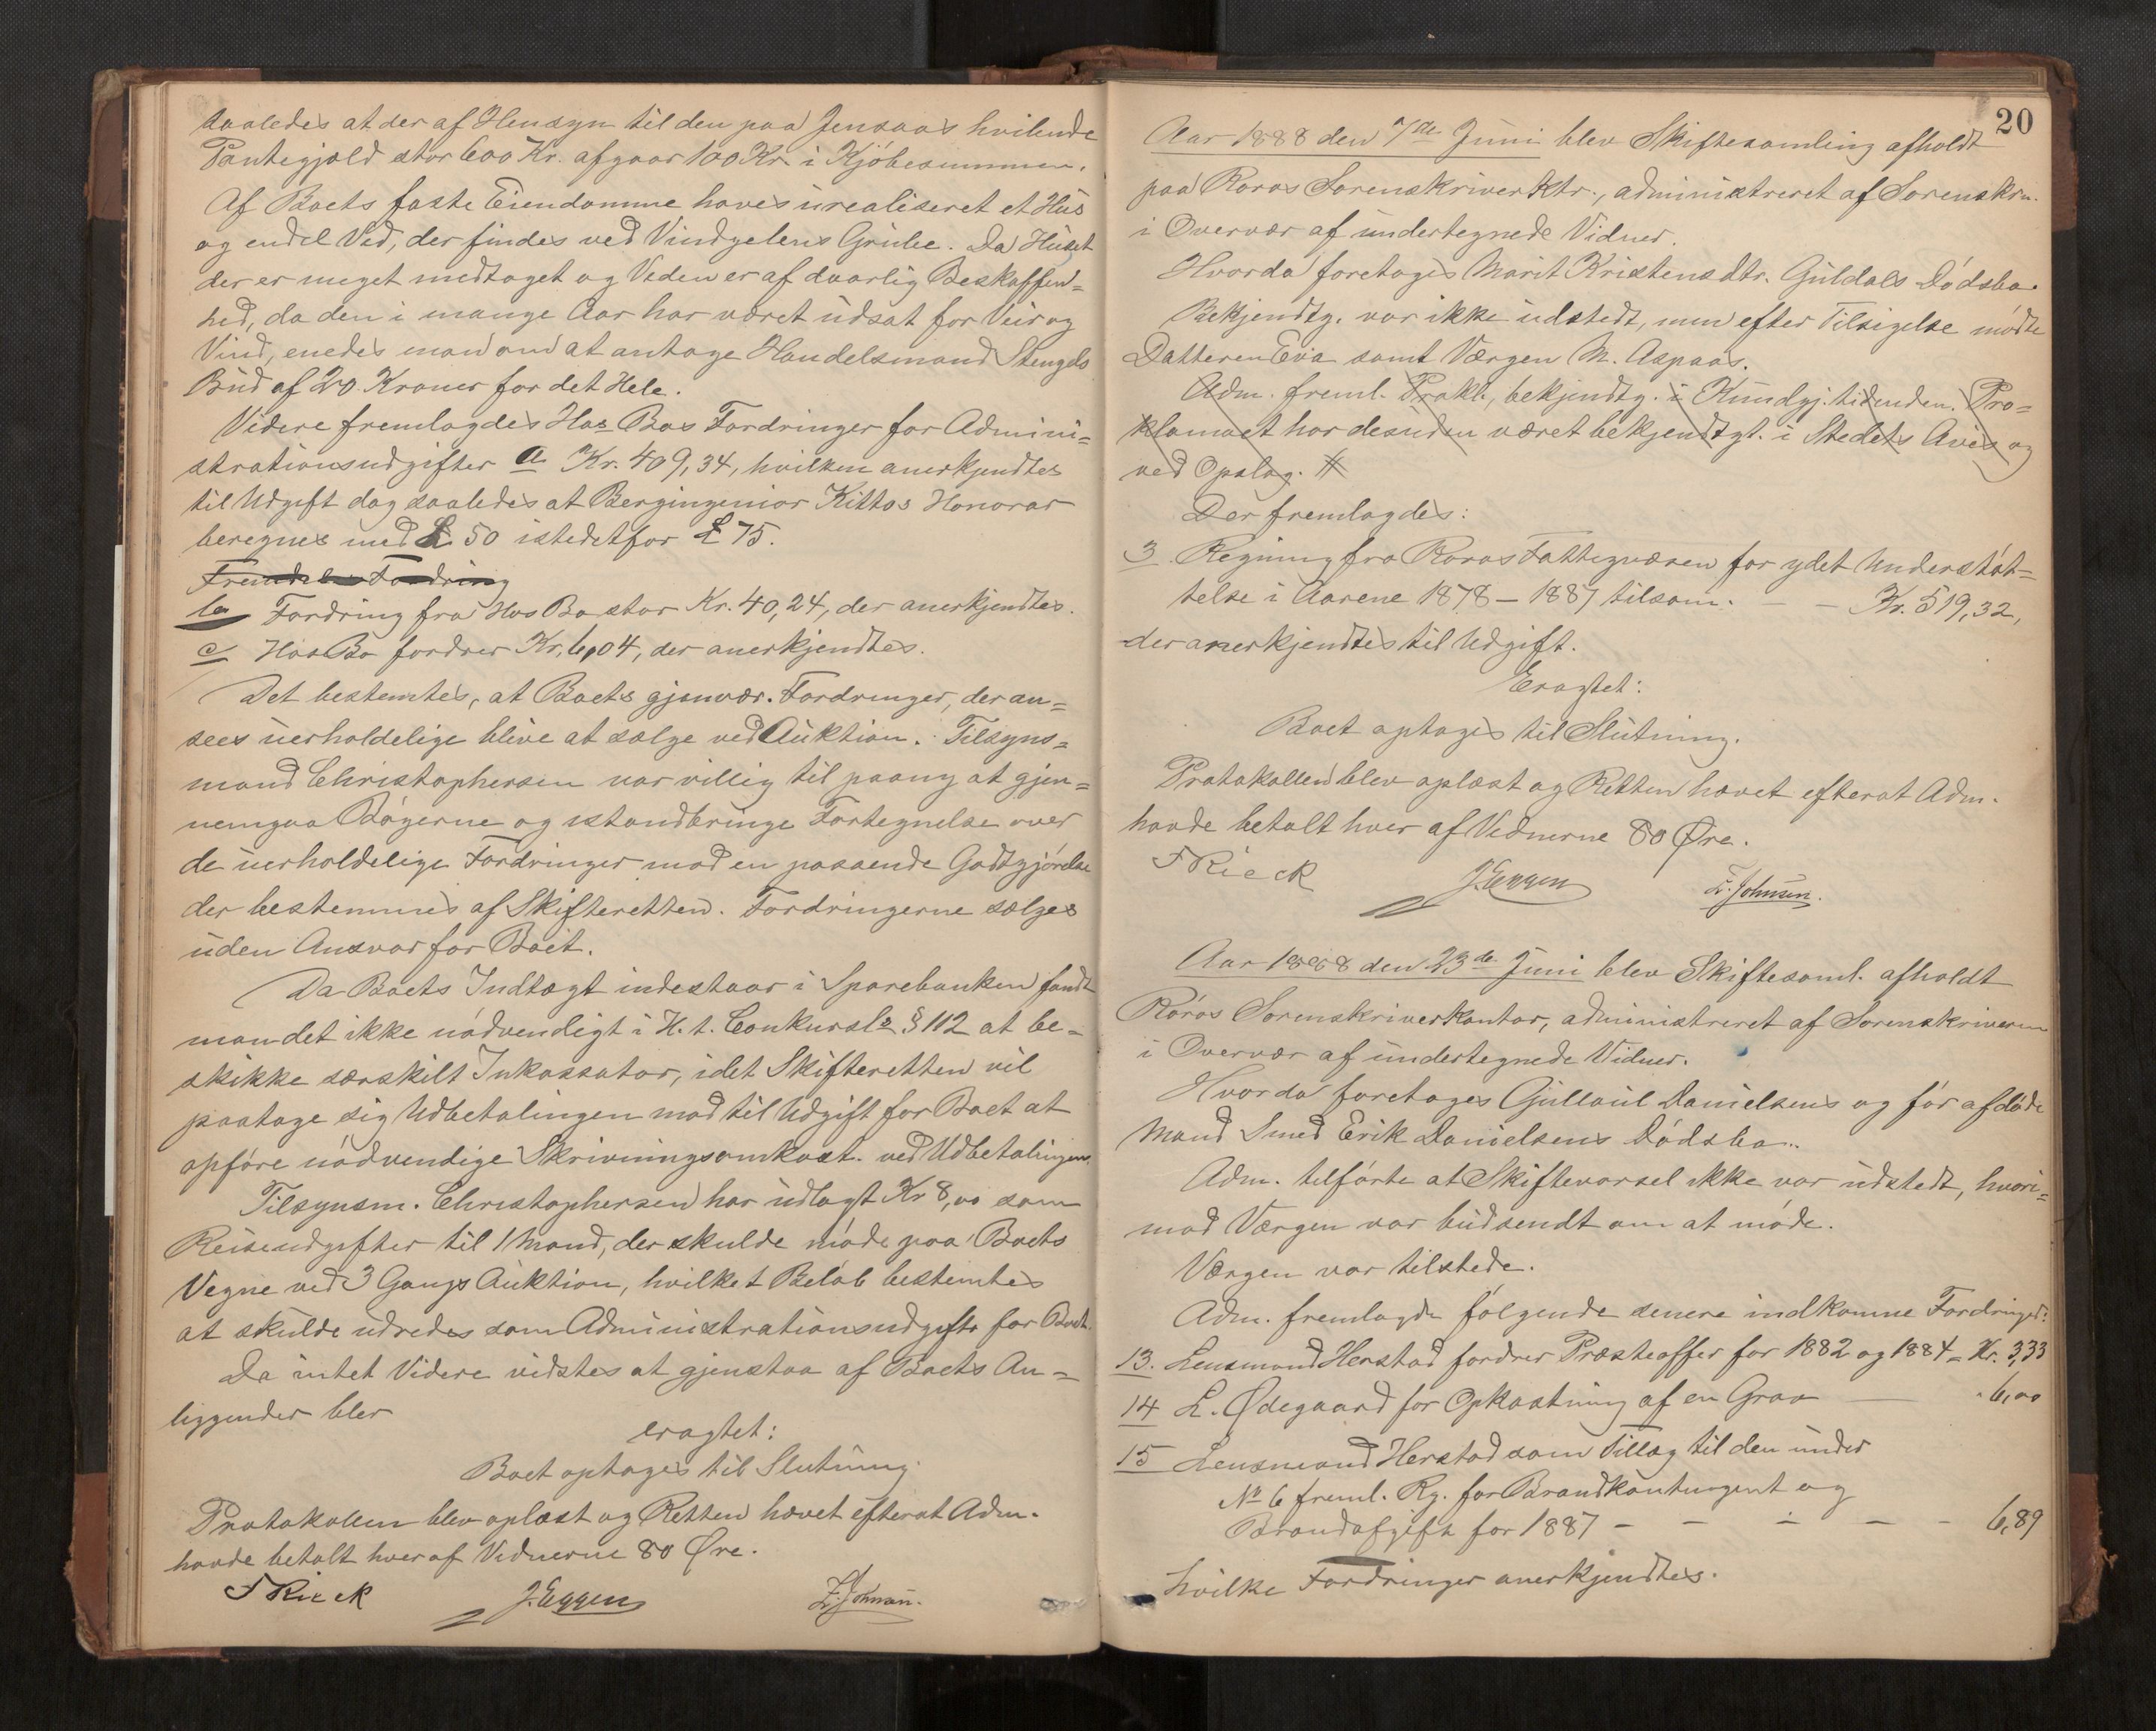 saaledes at der af Hensyn til den paa Jensaas hvilende
Pantegjæld stor 600 Kr. afgaar 100 Kr. i Kjöbesummen.
Af Boets faste Eiendomme haves urealiseret et Hus
og endel Ved, der findes ved Vindgelens Grube. Da Huset
der er meget medtaget og Veden er af daarlig Beskaffen=
hed, da den i mange Aar har været udsat for Veir og
Vind, enedes man om at antage Handelsmand Stengels
Bud af 20 Kroner for det Hele.
Videre fremlagdes Hos Bos Fordringer for Admini=
strationsudgifter a Kr. 409,34, hvilken anerkjendtes
til Udgift dog saaledes at Bergingeniör Kittos Honorar
beregnes med £ 50 istedetfor £ 75.
Fremdeles Fordring
b Fordring fra Hos Bo stor Kr. 40,24, der anerkjendtes.
c/ Hos Bo fordrer Kr. 6,04, der anerkjendtes.
Det bestemtes, at Boets gjenvær. Fordringer, der an=
sees uerholdelige blive at sælge ved Auktion. Tilsyns=
mand Christophersen var villig til paany at gjen=
nemgaa Bögerne og istandbringe Fortegnelse over
de uerholdelige Fordringer mod en passende Godtgjörelse
der bestemmes af Skifteretten. Fordringerne sælges
uden Ansvar for Boet.
Da Boets Indtægt indestaar i Sparebanken fandt
man det ikke nödvendigt i H. t. Conkursls § 112 at be=
skikke særskilt Inkassator, idet Skifteretten vil
paatage sig Udbetalingen mod til Udgift for Boet at
opföre nödvendige Skrivningsomkost. ved Udbetalingen.
Tilsynsm. Christophersen har udlagt Kr 8,00 som
Reiseudgifter til 1 Mand, der skulde möde paa Boets
Vegne ved 3 Gangs Auktion, hvilket Belöb bestemtes
at skulde udredes som Administrationsudgift for Boet.
Da intet Videre vidstes at gjenstaa af Boets An=
liggender blev
eragtet:
Boet optages til Slutning.
Protokollen blev oplæst og Retten hævet efterat Adm.
havde betalt hver af Vidnerne 80 Øre.
F Rieck J. Eggen L. Johnsen.
20
Aar 1888 den 7de Juni blev Skiftesamling afholdt
paa Roros Sorenskriverktr., administreret af Sorenskrv.
i Overvær af undertegnede Vidner.
Hvorda foretages Marit Kristensdtr. Guldals Dödsbo.
Bekjendtg. var ikke udstedt, men efter Tilsigelse mödte
Datteren Eva samt Værgen M. Aspaas.
Adm. freml. Prokl., bekjendtg. i Kundgj.tidenden. Pro=
klamaet har desuden været bekjendtgt. i Stedets Avis og
ved Opslag. #
Der fremlagdes:
3 Regning fra Roros Fattigvæsen for ydet Understöt=
telse i Aarene 1878 – 1887 tilsam. – – Kr. 519,32,
der anerkjendtes til Udgift.
Eragtet:
Boet optages til Slutning.
Protokollen blev oplæst og Retten hævet efterat Adm.
havde betalt hver af Vidnerne 80 Øre.
F Rieck J. Eggen L. Johnsen.
Aar 1888 den 23de Juni blev Skiftesaml. afholdt
Röros Sorenskriverkontor, administreret af Sorenskriveren
i Overvær af undertegnede Vidner.
Hvorda foretages Gulloul Danielsens og för afdöde
Mand Smed Erik Danielsens Dödsbo.
Adm. tilförte at Skiftevarsel ikke var udstedt, hvori=
mod Værgen var budsendt om at möde.
Værgen var tilstede.
Adm. fremlagde fölgende senere indkomne Fordringer:
13. Lensmand Herstad fordrer Præsteoffer for 1882 og 1884 = Kr. 3,33
14 L. Ødegaard for Opkastning af en Grav — " 6,00
15 Lensmand Herstad som Tillæg til den under
No 6 freml. Rg. for Brandkontingent og
Brandafgift for 1887 – – – – – 6,89
hvilke Fordringer anerkjendtes.